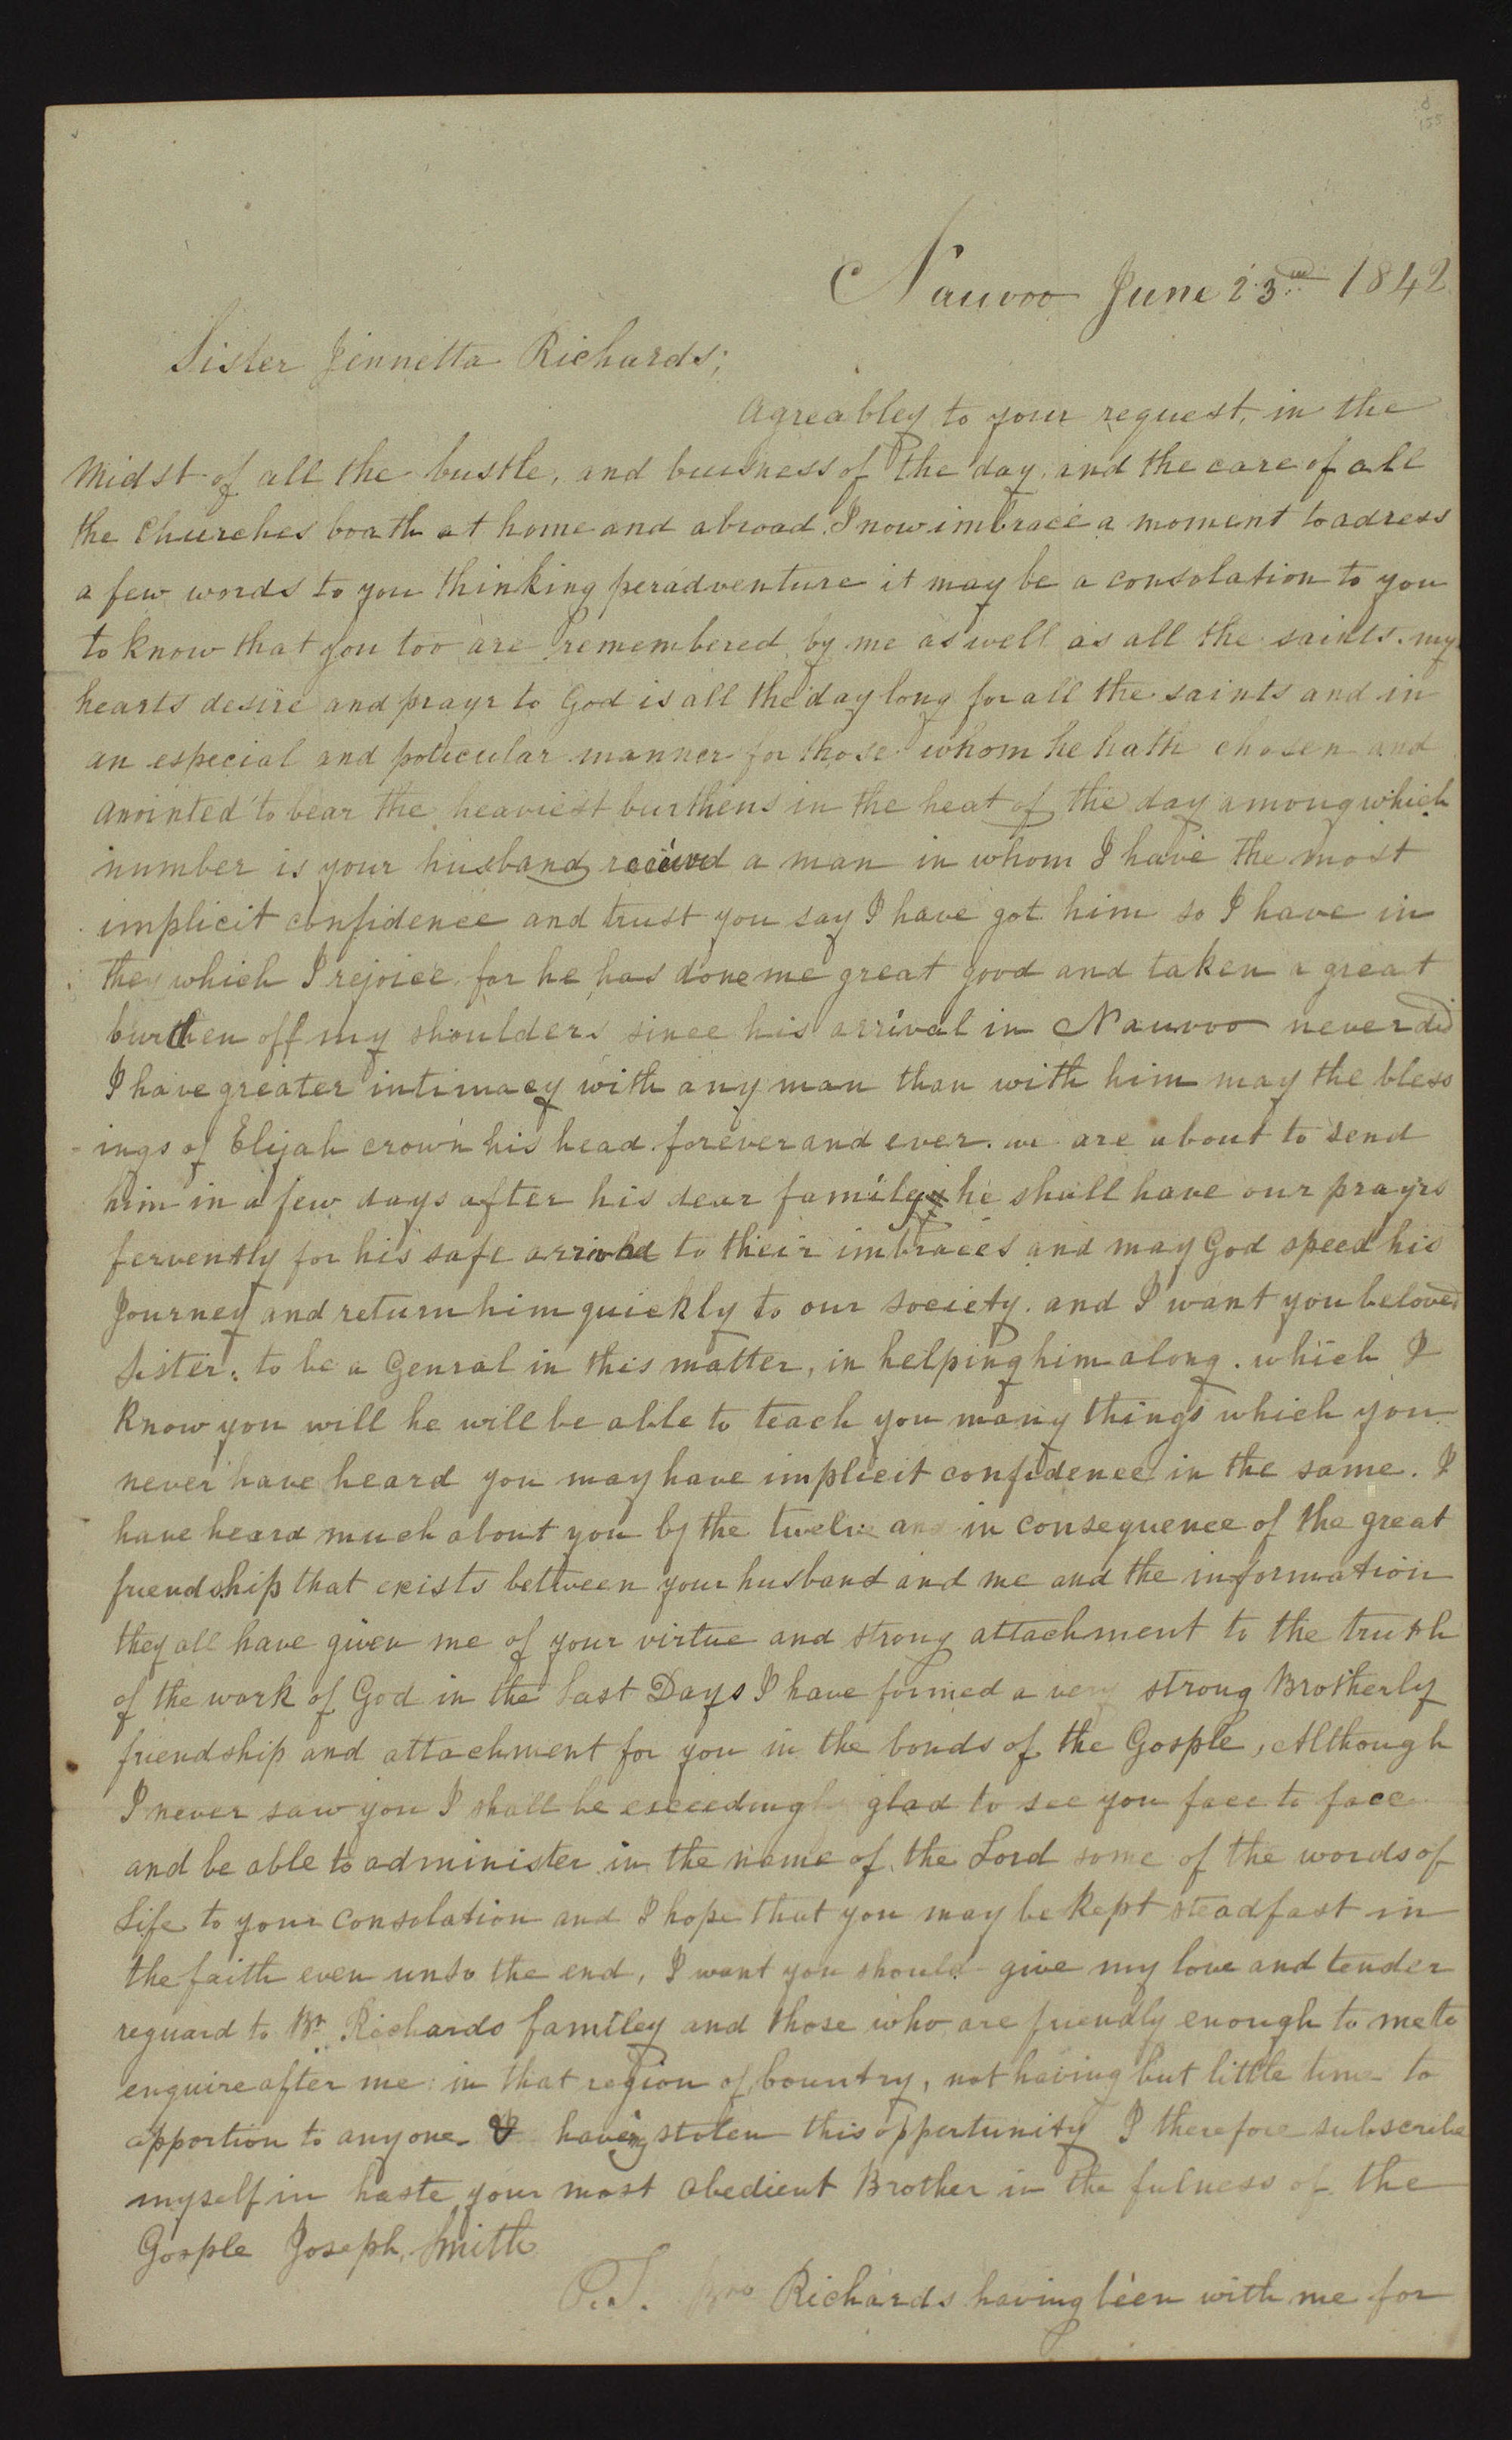 Nauvoo June 23rd 1842
Sister Jennetta Richards;
Agreabley to your request, in the
midst of all the bustle, and buisness of the day, and the care of all
the Churches boath at home and abroad. I now imbrace a moment to adress
a few words to you thinking peradventure it may be a consolation to you
to know that you too are remembered by me as well as all the saints. my
hearts desire and prayr to God is all the day long for all the saints and in
an especial and poticular manner for those whom he hath chosen and
anointed to bear the heaviest burthens in the heat of the day among which
number is your husband recived a man in whom I have the most
implicit confidence and trust you say I have got him so I have in
they which I rejoice for he has done me great good and taken a great
burthen off my shoulders since his arrival in Nauvoo never did
I have greater intimacy with any man than with him may the bless
ings of Elijah crown his head forever and ever. we are about to send
him in a few days after his dear familey he shall have our prayrs
fervently for his safe arrival to their imbraces and may God speed his
Journey and return him quickly to our society. and I want you beloved
Sister; to be a Genral in this matter, in helping him along. which I
know you will he will be able to teach you many things which you
never have heard you may have implicit confidence in the same. I
have heard much about you by the twelve and in consequence of the great
friendship that exists between your husband and me and the information
they all have given me of your virtue and strong attachment to the truth
of the work of God in the Last Days I have formed a very strong Brotherly
friendship and attachment for you in the bonds of the Gosple, Although
I never saw you I shall be exceedingly glad to see you face to face
and be able to administer in the name of the Lord some of the words of
Life to your consolation and I hope that you may be kept steadfast in
the faith even unto the end, I want you should give my love and tender
reguard to Br Richards familey and those who are friendly enough to me to
enquire after me in that region of country, not having but little time to
apportion to anyone & having stolen this oppertunity I therefore subscribe
myself in haste your most obedient Brother in the fulness of the
Gosple Joseph Smith
P.S. Bro Richards having been with me for